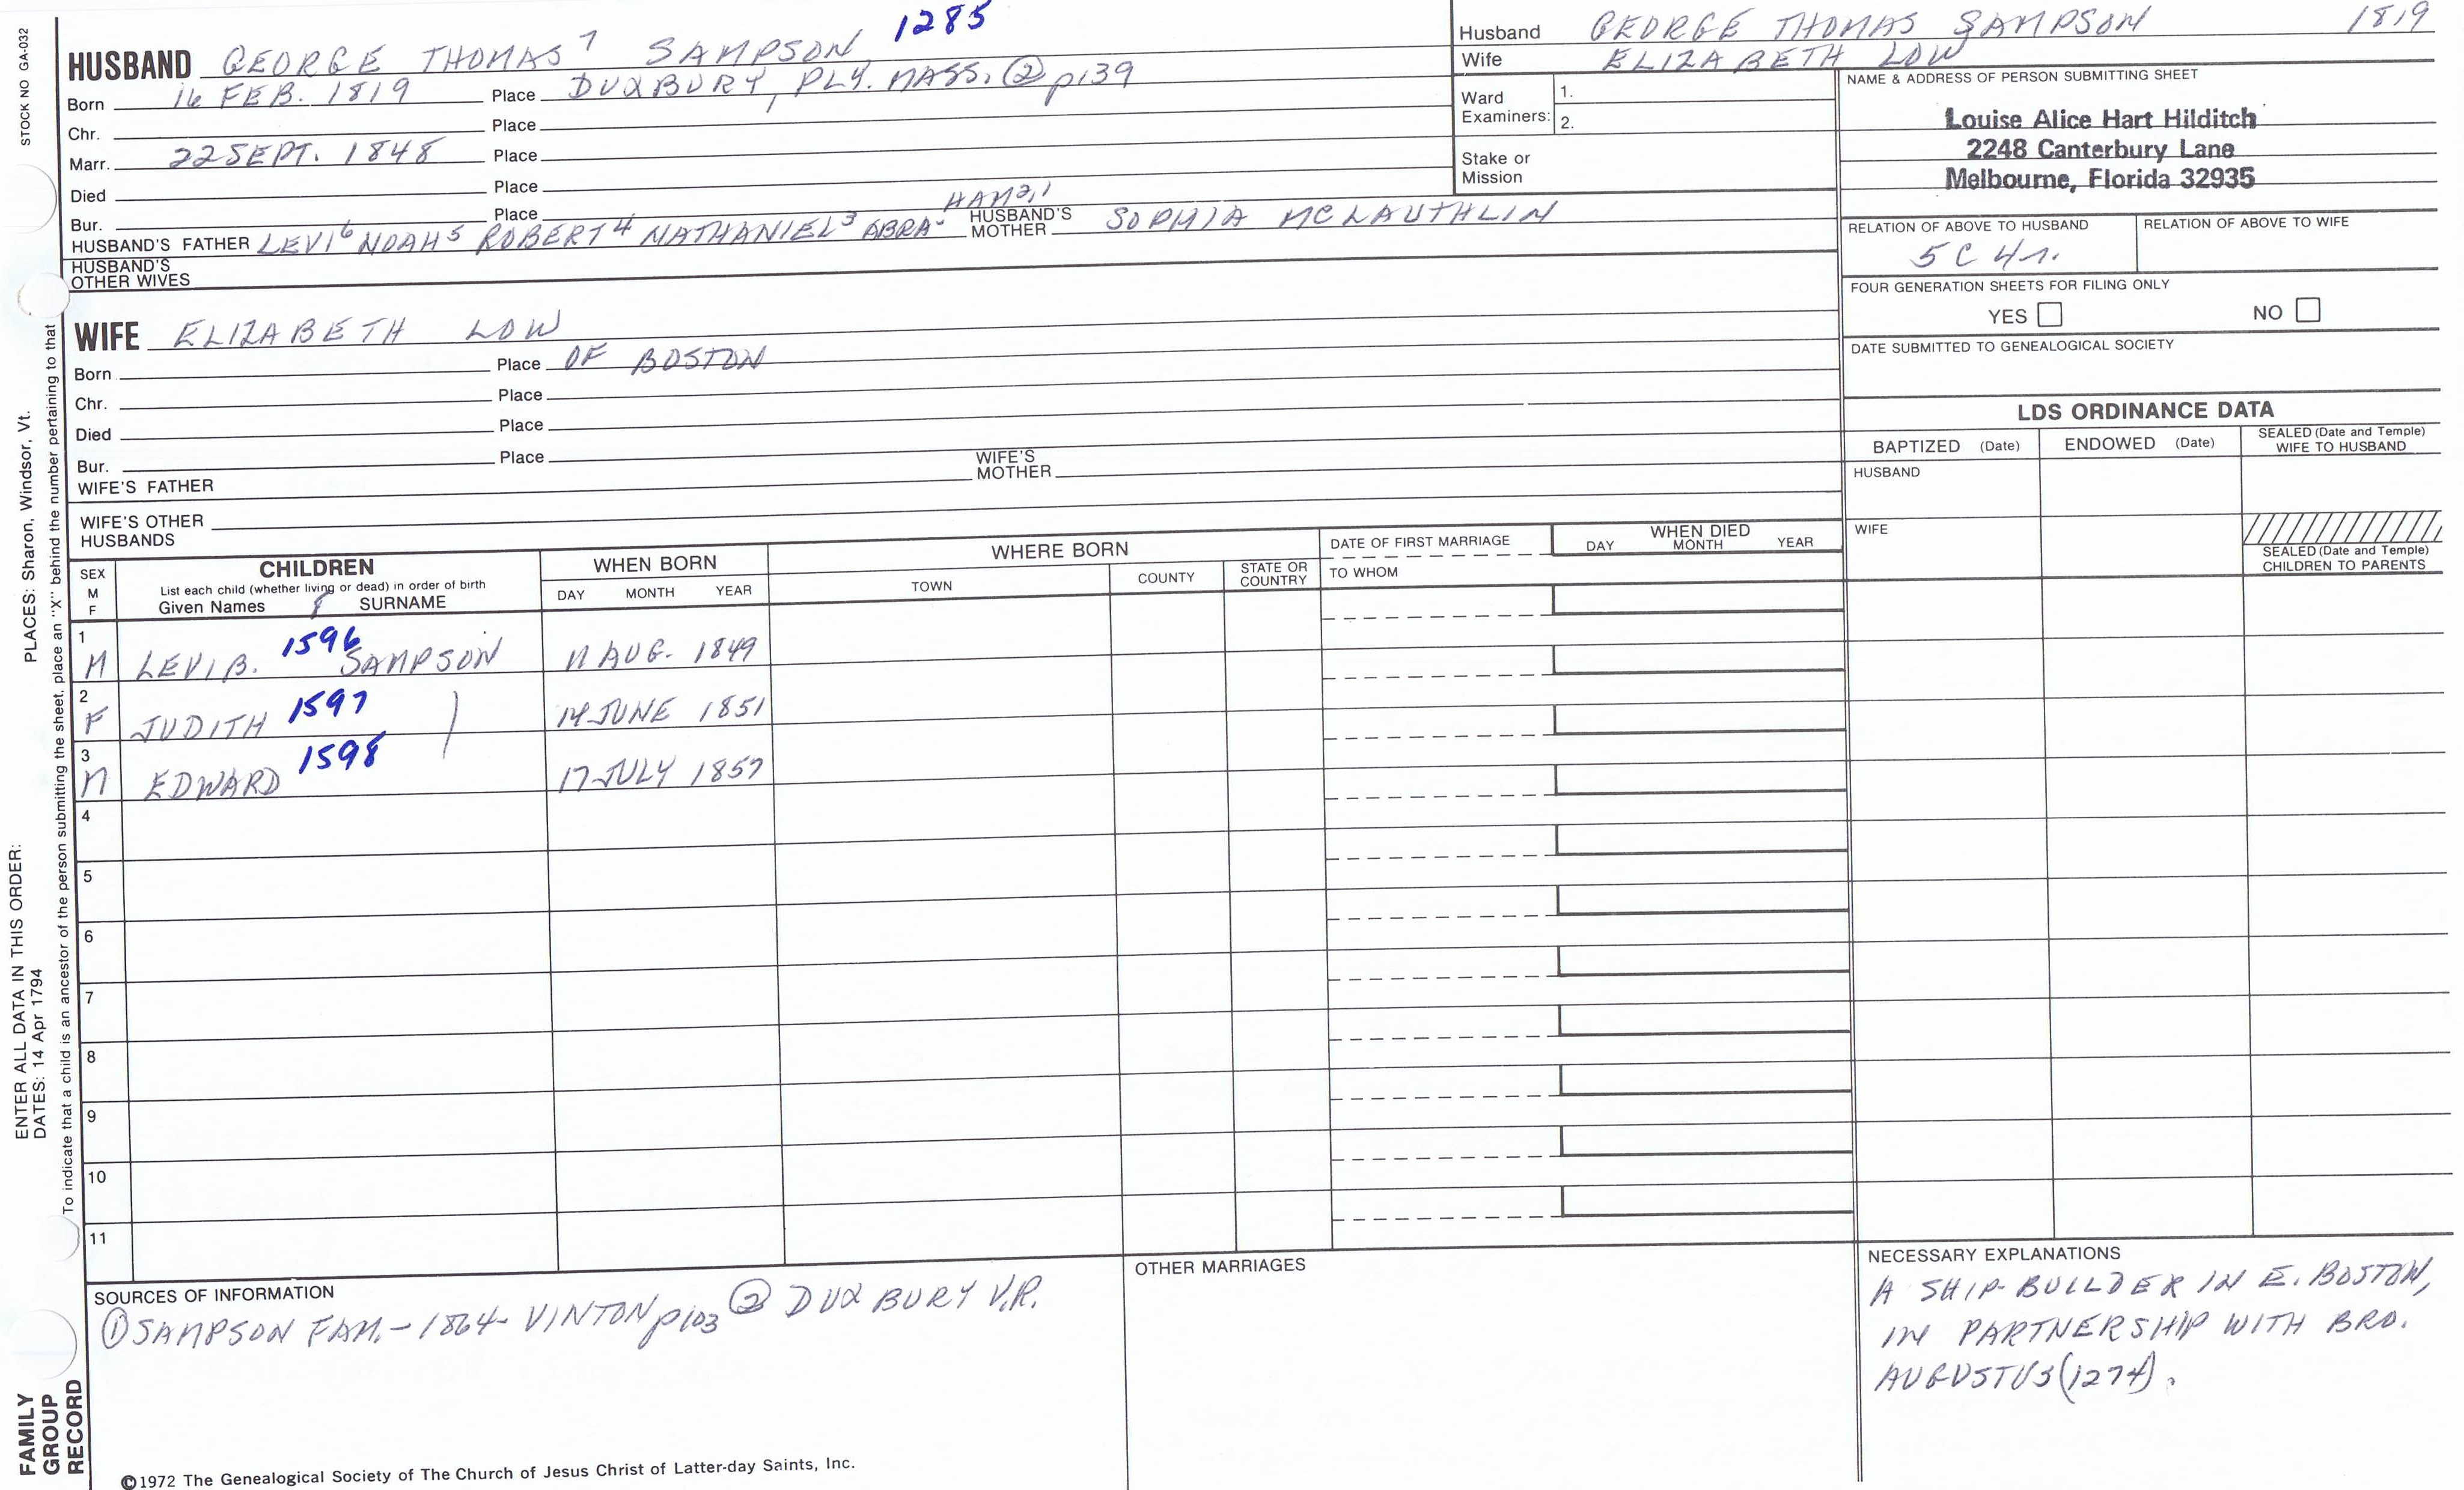 STOCK NO GA-032
HUSBAND GEORGE THOMAS⁷ SAMPSON 1285
Born 16 FEB. 1819 Place DUXBURY, PLY. MASS. ② p139
Chr. Place
Marr. 22 SEPT. 1848 Place
Died Place
Bur. Place
HUSBAND'S FATHER LEVI⁶ NOAH⁵ ROBERT⁴ NATHANIEL³ ABRA- HAM2,1 HUSBAND'S MOTHER SOPHIA MCLAUTHLIN
HUSBAND'S OTHER WIVES
WIFE ELIZABETH LOW
Born Place OF BOSTON
Chr. Place
Died Place
Bur. Place
WIFE'S FATHER WIFE'S MOTHER
WIFE'S OTHER HUSBANDS
Husband GEORGE THOMAS SAMPSON 1819
Wife ELIZABETH LOW
Ward Examiners: 1.
2.
Stake or Mission
NAME & ADDRESS OF PERSON SUBMITTING SHEET
Louise Alice Hart Hilditch
2248 Canterbury Lane
Melbourne, Florida 32935
RELATION OF ABOVE TO HUSBAND RELATION OF ABOVE TO WIFE
5 C 4 r.
FOUR GENERATION SHEETS FOR FILING ONLY
YES NO
DATE SUBMITTED TO GENEALOGICAL SOCIETY
LDS ORDINANCE DATA
BAPTIZED (Date) ENDOWED (Date) SEALED (Date and Temple) WIFE TO HUSBAND
HUSBAND
WIFE
SEALED (Date and Temple) CHILDREN TO PARENTS
SEX M F CHILDREN WHEN BORN WHERE BORN DATE OF FIRST MARRIAGE WHEN DIED
List each child (whether living or dead) in order of birth
Given Names 8 SURNAME DAY MONTH YEAR TOWN COUNTY STATE OR COUNTRY TO WHOM DAY MONTH YEAR
1 M LEVI B. 1596 SAMPSON 11 AUG. 1849
2 F JUDITH 1597 14 JUNE 1851
3 M EDWARD 1598 17 JULY 1857
4
5
6
7
8
9
10
11
SOURCES OF INFORMATION
① SAMPSON FAM. - 1864 - VINTON p103 ② DUXBURY V.R.
OTHER MARRIAGES
NECESSARY EXPLANATIONS
A SHIP-BUILDER IN E. BOSTON,
IN PARTNERSHIP WITH BRO.
AUGUSTUS (1274).
©1972 The Genealogical Society of The Church of Jesus Christ of Latter-day Saints, Inc.
FAMILY
GROUP
RECORD
ENTER ALL DATA IN THIS ORDER:
DATES: 14 Apr 1794
PLACES: Sharon, Windsor, Vt.
To indicate that a child is an ancestor of the person submitting the sheet, place an "X" behind the number pertaining to that